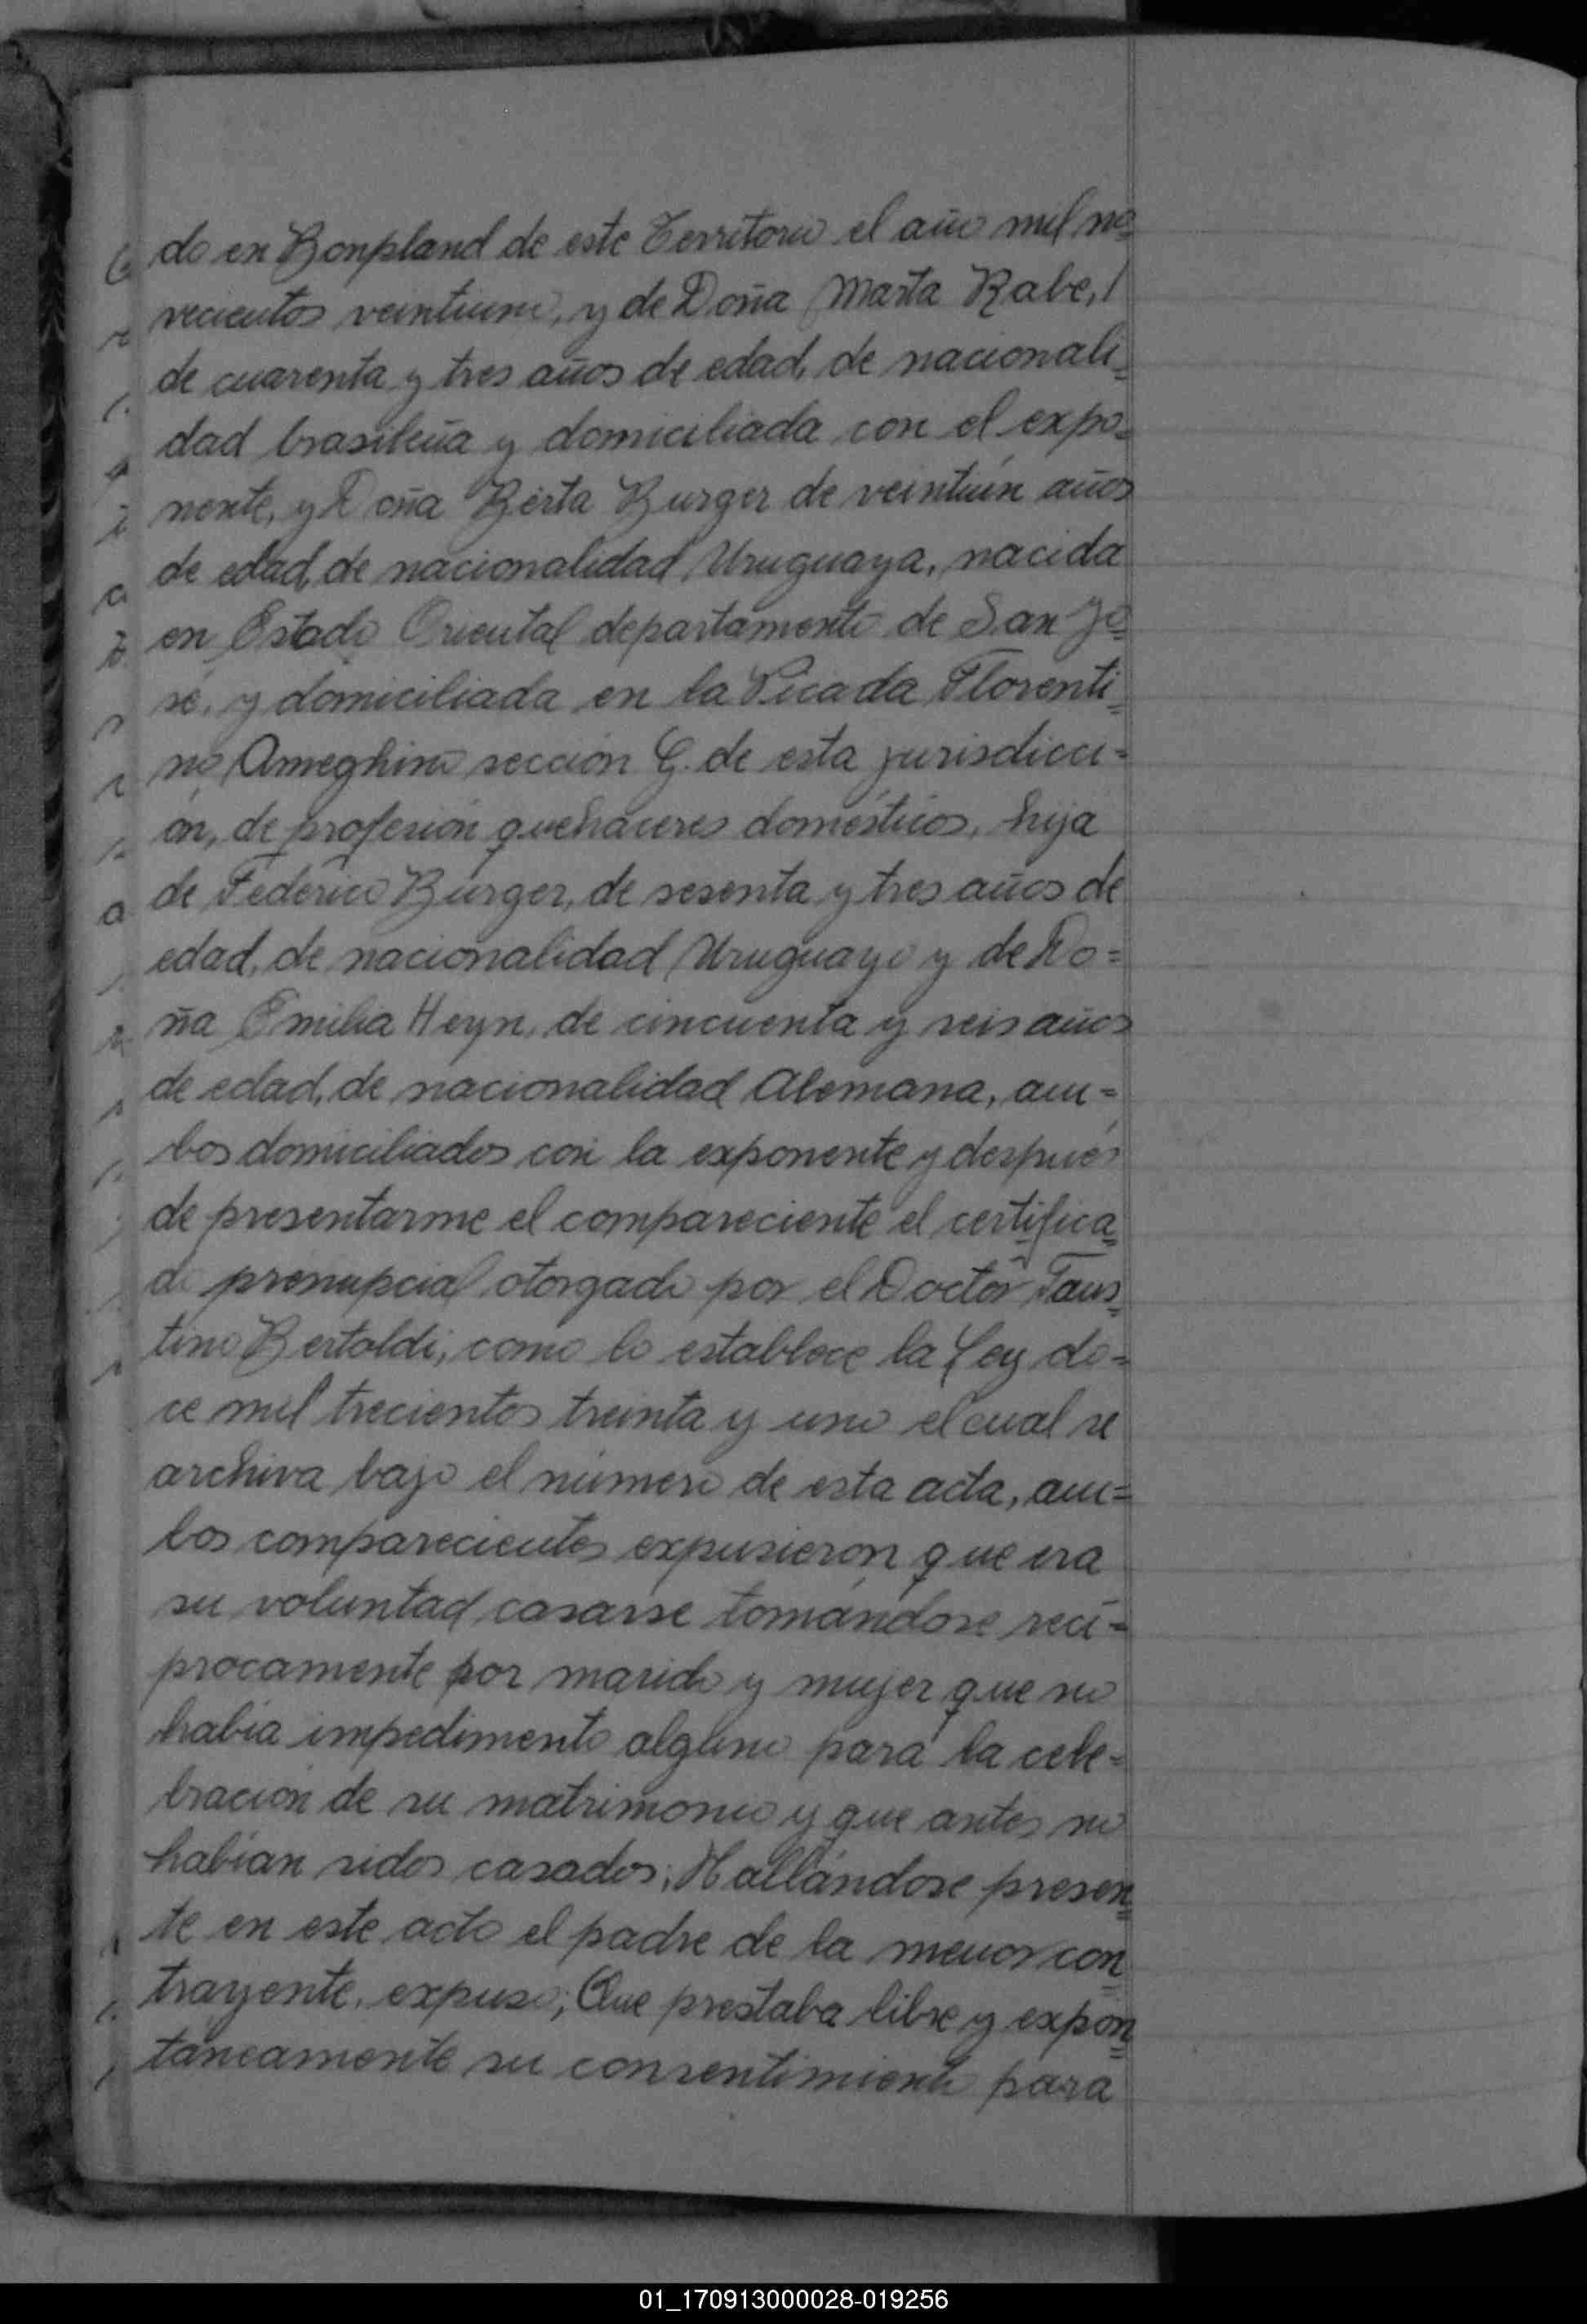 do en Bonpland de este Territorio el año mil no=
vecientos veintiuno, y de Doña Marta Rabe, /
de cuarenta y tres años de edad, de nacionali=
dad brasileña y domiciliada con el expo=
nente, y Doña Berta Burger de veintiún años
de edad, de nacionalidad Uruguaya, nacida
en Estado Oriental departamento de San Jo=
sé, y domiciliada en la Picada Florenti=
no Ameghino sección G. de esta jurisdicci=
ón, de profesión quehaceres domésticos, hija
de Federico Burger, de sesenta y tres años de
edad, de nacionalidad Uruguayo y de Do=
ña Emilia Heyn, de cincuenta y seis años
de edad, de nacionalidad Alemana, am=
bos domiciliados con la exponente y después
de presentarme el compareciente el certifica=
do prenupcial otorgado por el Doctor Faus=
tino Bertoldi, como lo establece la Ley do=
ce mil trecientos treinta y uno el cual se
archiva bajo el número de esta acta, am=
bos comparecientes expusieron que era
su voluntad casarse tomándose recí=
procamente por marido y mujer que no
había impedimento alguno para la cele=
bración de su matrimonio y que antes no
habían sidos casados; Hallándose presen=
te en este acto el padre de la menor con=
trayente, expuso; Que prestaba libre y expon=
táneamente su consentimiento para
01_170913000028-019256